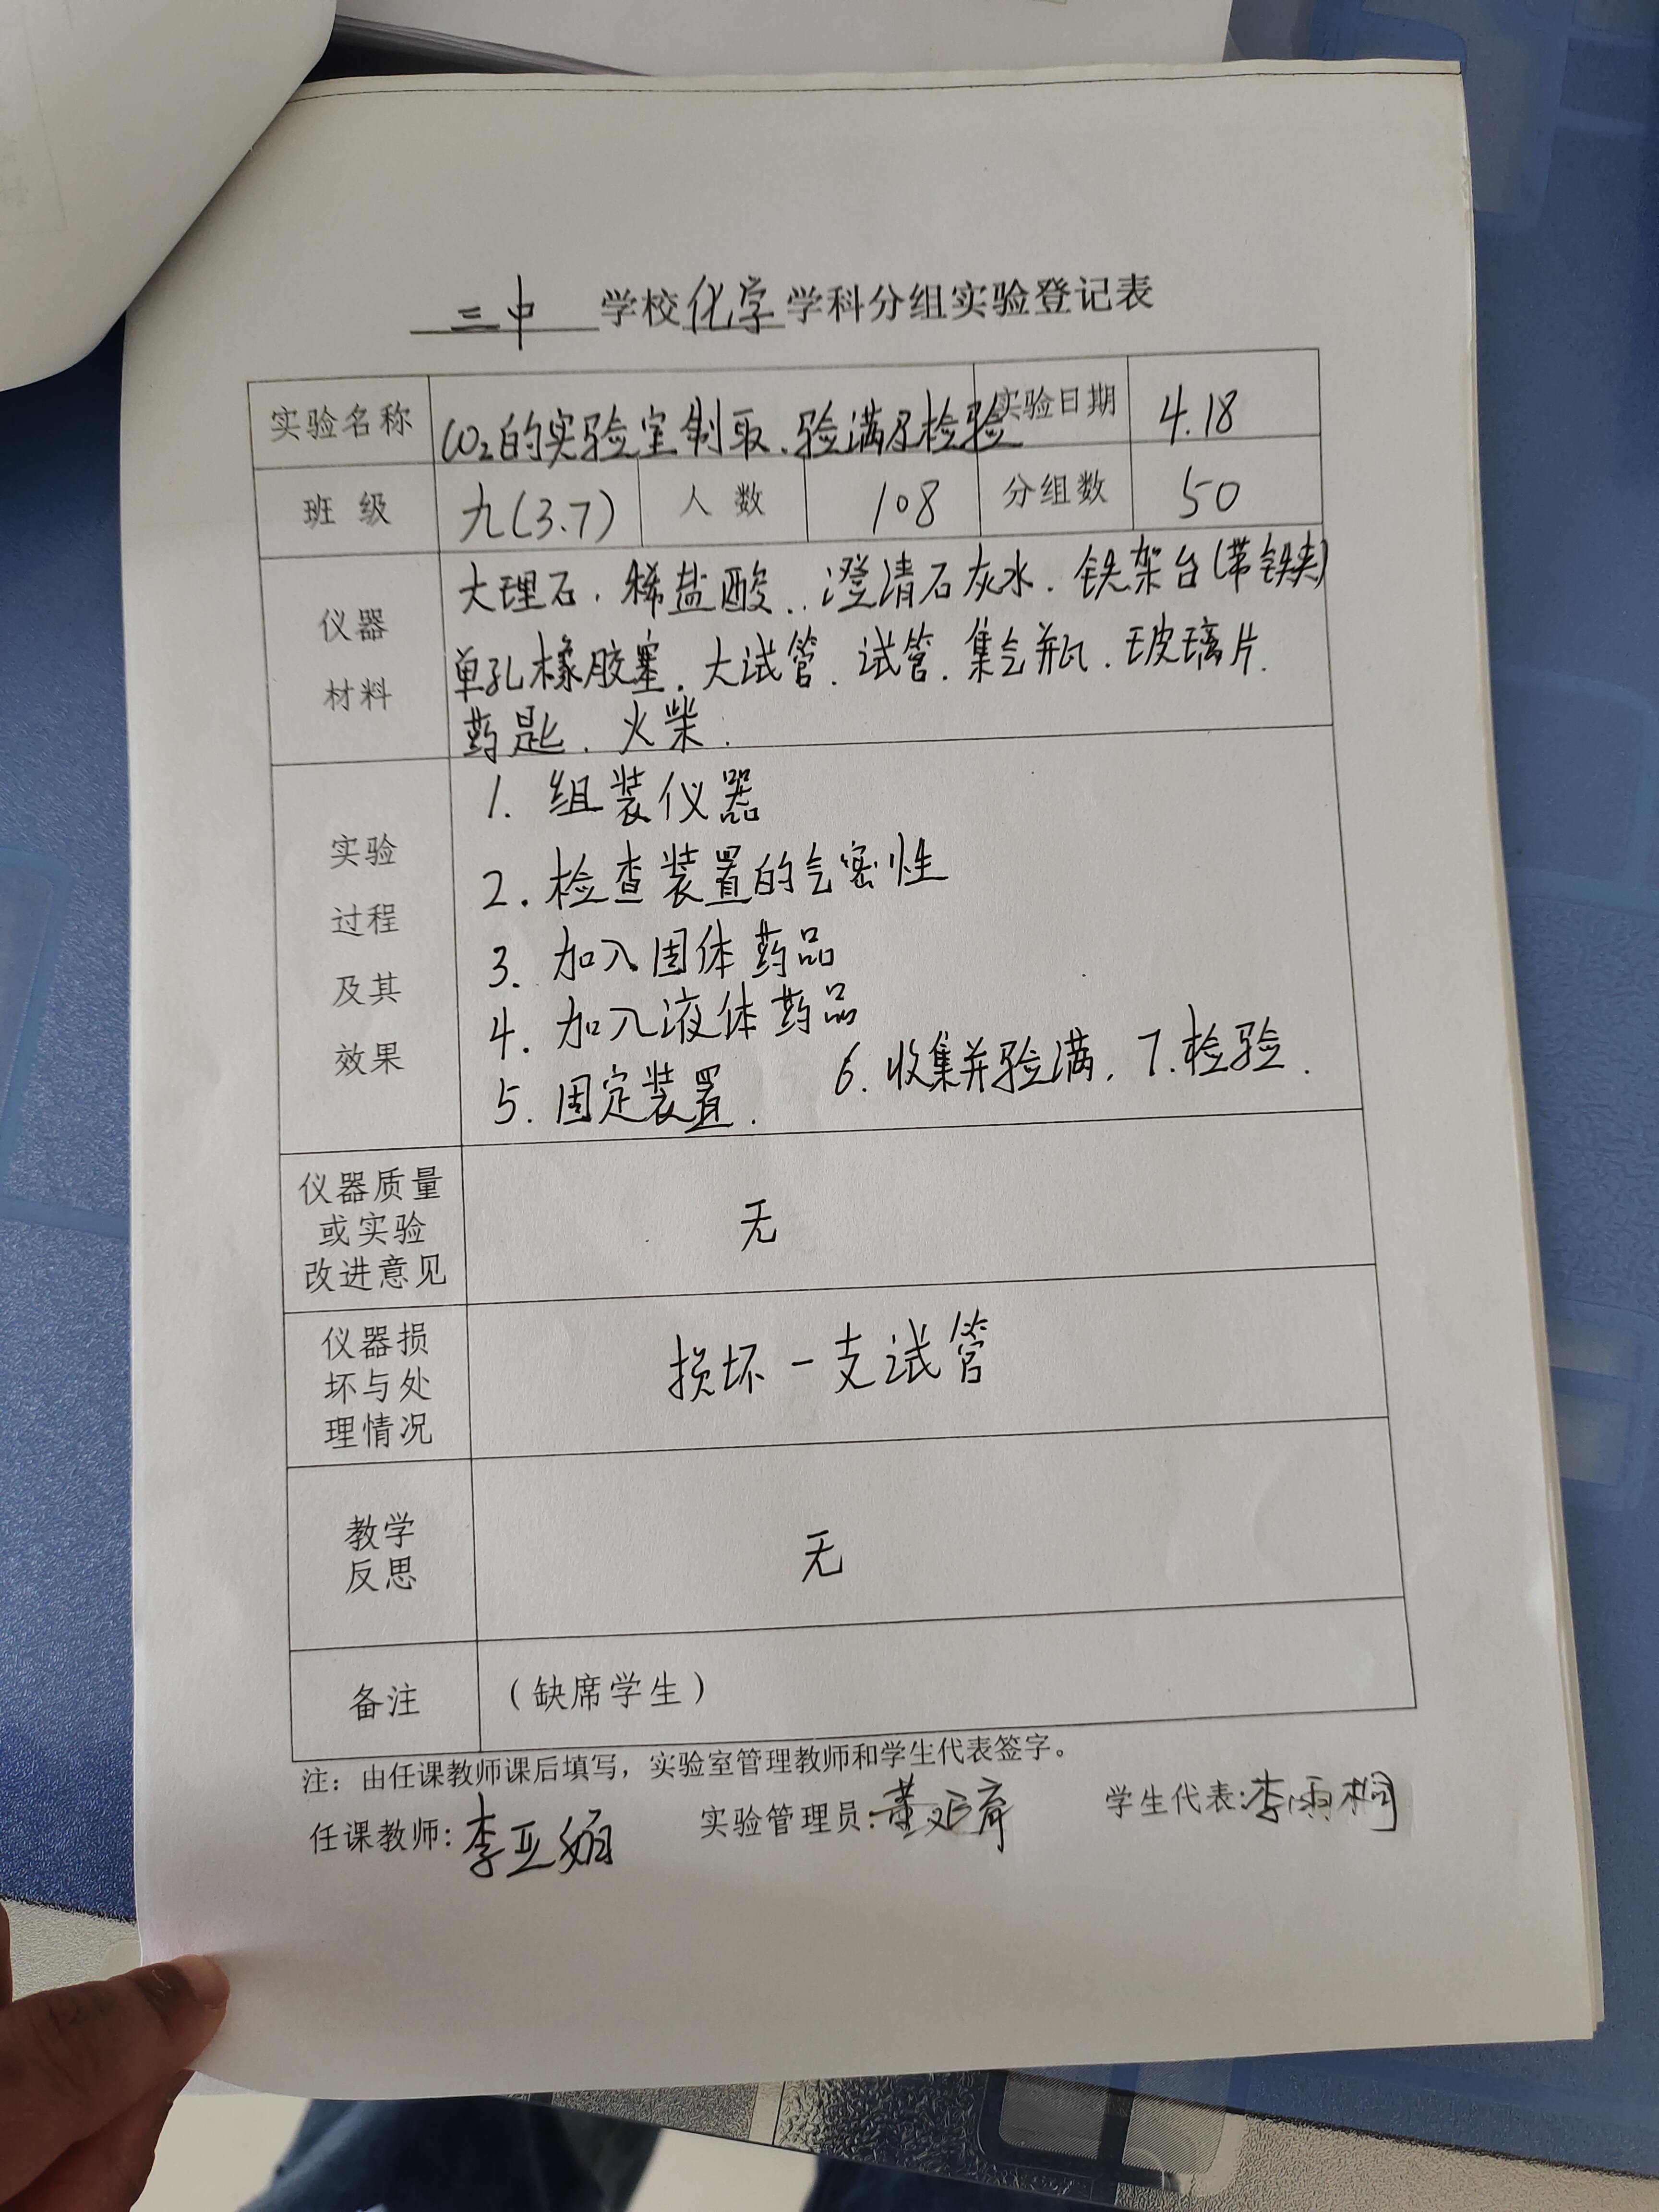 三中 学校 化学 学科分组实验登记表
实验名称 CO₂的实验室制取.验满及检验 实验日期 4.18
班级 九(3.7) 人数 108 分组数 50
仪器材料 大理石.稀盐酸..澄清石灰水.铁架台(带铁夹)
单孔橡胶塞.大试管.试管.集气瓶.玻璃片.
药匙.火柴.
实验过程及其效果 1. 组装仪器
2. 检查装置的气密性
3. 加入固体药品
4. 加入液体药品
5. 固定装置. 6. 收集并验满. 7. 检验.
仪器质量或实验改进意见 无
仪器损坏与处理情况 损坏一支试管
教学反思 无
备注 (缺席学生)
注：由任课教师课后填写，实验室管理教师和学生代表签字。
任课教师: 李亚娟 实验管理员: 董 育 学生代表: 李雨桐